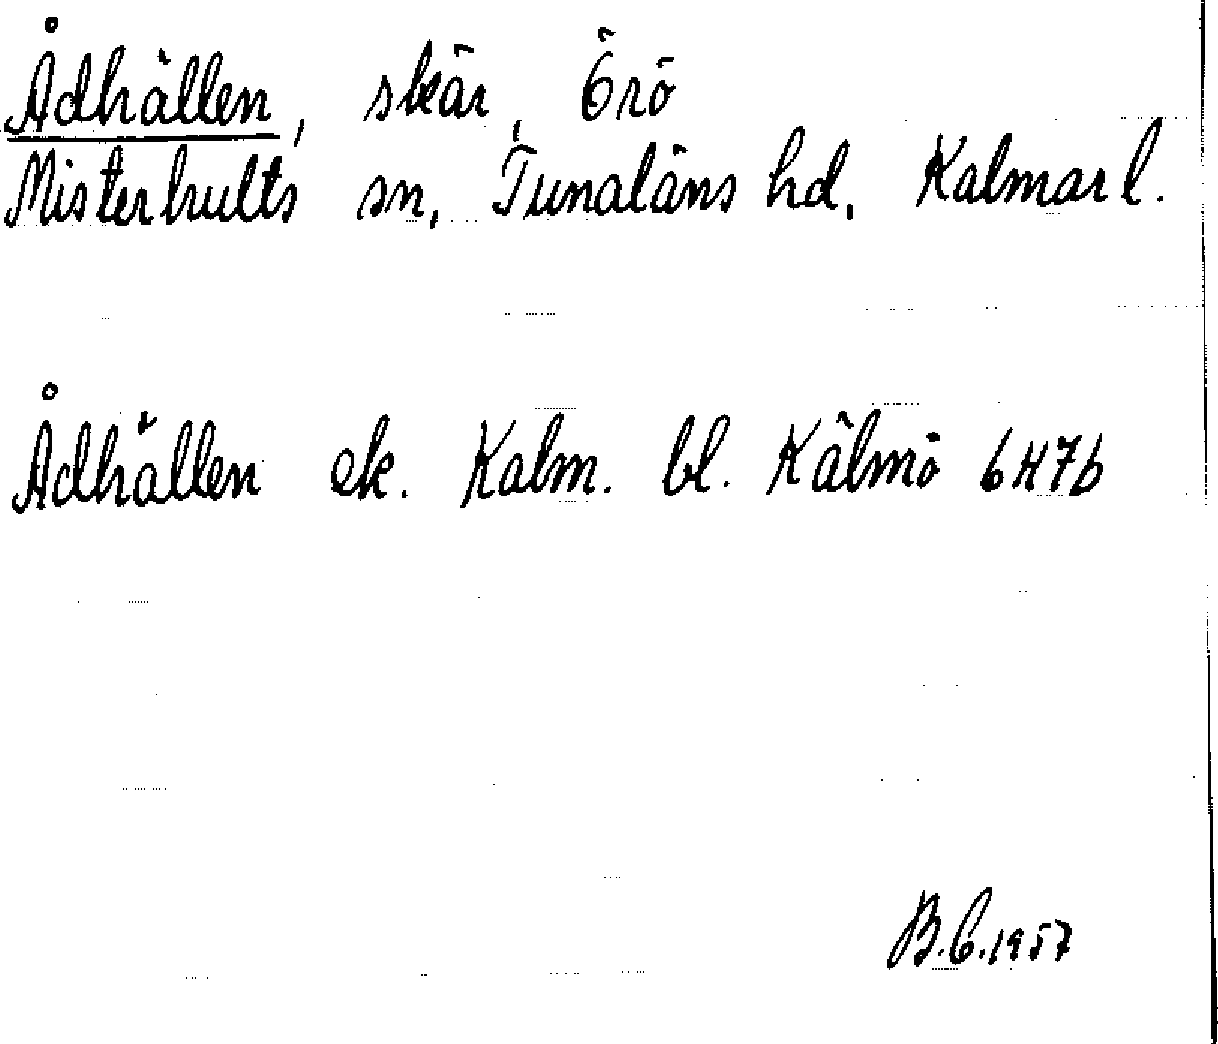 Ådhällen, skär, Örö
Misterhults sn, Tunaläns hd, Kalmar l.
Ådhällen ek. Kalm. bl. Kälmö 6H7b
B.C.1957